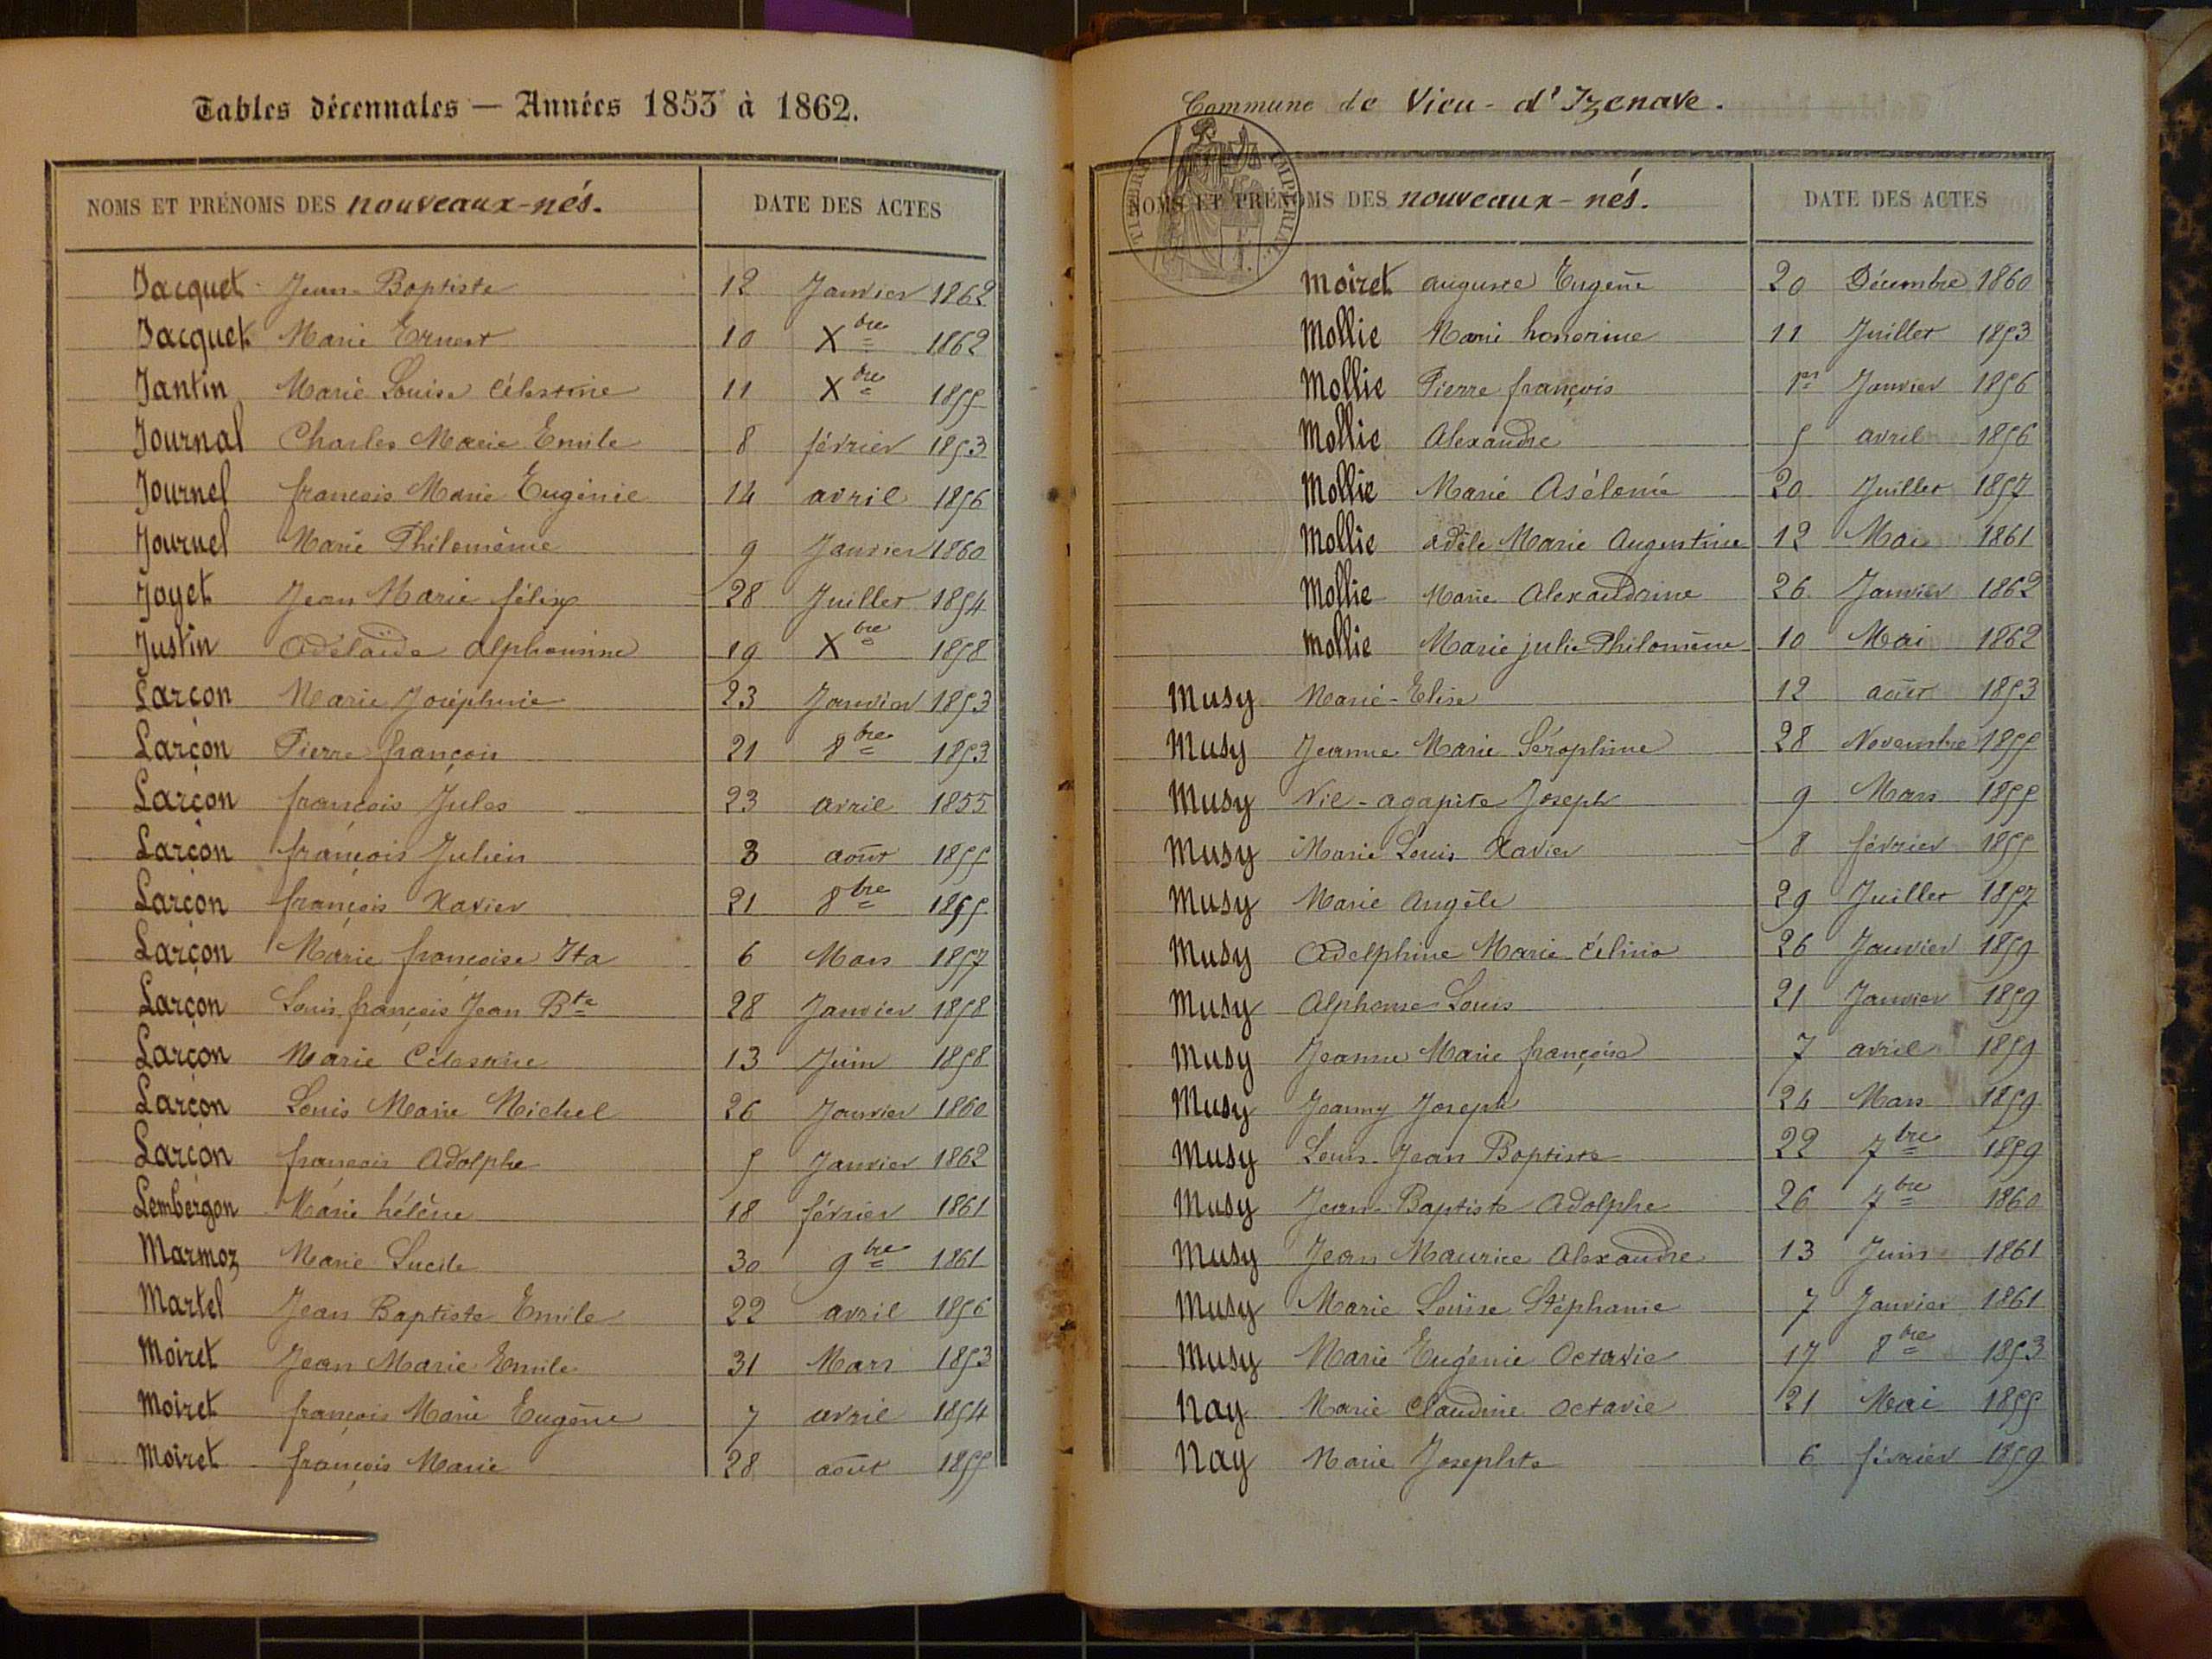 Tables décennales — Années 1853 à 1862.
NOMS ET PRÉNOMS DES nouveaux-nés. DATE DES ACTES
Jacquet Jean-Baptiste 12 Janvier 1862
Jacquet Marie Ernest 10 Xbre 1862
Jantin Marie Louise Célestine 11 Xbre 1855
Journal Charles Marie Emile 8 février 1853
Journel françois Marie Eugénie 14 avril 1856
Journel Marie Philomène 9 Janvier 1860
Joyet Jean Marie félix 28 Juillet 1854
Justin Adélaïde alphonsine 19 Xbre 1858
Larçon Marie Joséphine 23 Janvier 1853
Larçon Pierre françois 21 8bre 1853
Larçon françois Jules 23 avril 1855
Larçon françois Julien 3 août 1855
Larçon françois Xavier 21 8bre 1855
Larçon Marie françoise Ita 6 Mars 1857
Larçon Louis françois Jean Bte 28 Janvier 1858
Larçon Marie Célestine 13 Juin 1858
Larçon Louis Marie Michel 26 Janvier 1860
Larçon françois Adolphe 5 Janvier 1862
Lembergon Marie hélène 18 février 1861
Marmoz Marie Lucile 30 9bre 1861
Martel Jean Baptiste Emile 22 avril 1856
Moiret Jean Marie Emile 31 Mars 1853
Moiret françois Marie Eugène 7 avril 1854
Moiret françois Marie 28 août 1855
Commune de Vieu-d'Izenave.
TIMBRE IMPÉRIAL
NOMS ET PRÉNOMS DES nouveaux-nés. DATE DES ACTES
Moiret auguste Eugène 20 Décembre 1860
Mollie Marie honorine 11 Juillet 1853
Mollie Pierre françois 1er Janvier 1856
Mollie Alexandre 5 avril 1856
Mollie Marie Asélonie 20 Juillet 1857
Mollie adèle Marie Augustine 12 Mai 1861
Mollie Marie Alexandrine 26 Janvier 1862
Mollie Marie julie Philomène 10 Mai 1862
Musy Marie-Elise 12 août 1853
Musy Jeanne Marie Séraphine 28 Novembre 1855
Musy Vie-agapite Joseph 9 Mars 1855
Musy Marie Louis Xavier 8 février 1855
Musy Marie Angèle 29 Juillet 1857
Musy Adelphine Marie Célinie 26 Janvier 1859
Musy Alphonse Louis 21 Janvier 1859
Musy Jeanne Marie françoise 7 avril 1859
Musy Jeanny Joseph 24 Mars 1859
Musy Louis Jean Baptiste 22 7bre 1859
Musy Jean-Baptiste Adolphe 26 7bre 1860
Musy Jean Maurice Alexandre 13 Juin 1861
Musy Marie Louise Stéphanie 7 Janvier 1861
Musy Marie Eugénie Octavie 17 8bre 1853
Nay Marie Claudine Octavie 21 Mai 1855
Nay Marie Josephte 6 février 1859